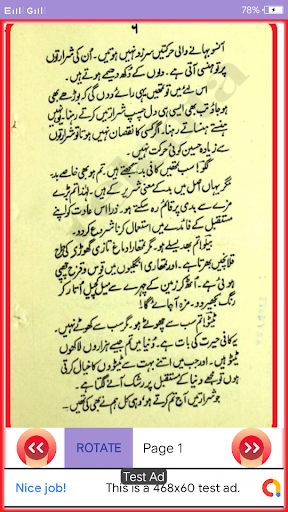 78%
۶
آنسو بہانے والی حرکتیں سرزد نہیں ہوتیں۔ اُن کی شرارتوں
پر تو ہنسی آتی ہے۔ دلوں کے دُکھ دھیمے ہوتے ہیں۔
اس لئے میں تو تمہیں یہی رائے دوں گی کہ بوڑھے بھی
ہو جاؤ تب بھی ایسی ہی دل چسپ شرارتیں کرتے رہنا۔ یونہی
ہنستے ہنساتے رہنا۔ اگر کسی کا نقصان نہیں ہوتا تو شرارتوں
سے زیادہ حسین کوئی حرکت نہیں۔
سب تمہیں کافی بد سمجھتے ہیں۔ تم ہو بھی خاصے بد
مگر یہاں اصل میں بد کے معنی شریر کے ہیں۔ لہٰذا تم بڑے
مزے سے بدی پر قائم رہ سکتے ہو۔ ذرا اس عادت کو اپنے
مستقبل کے فائدے میں استعمال کرنا شروع کر دو۔
تم بھی پھیلے ہو۔ مگر تمہارا دماغ تازی گھوڑی کی طرح
قلانچیں بھرتا ہے۔ اور تمہاری انگلیوں میں قوس و قزح چھپی
ہوئی ہے۔ اُٹھو کر زمین کے چہرے سے میل کچیل اُتار کر
رنگ بکھیر دو۔ مزہ آ جائے گا!
تم سب سے چھوٹے ہو۔ مگر سب سے کھوٹے نہیں۔
یہ کافی حیرت کی بات ہے۔ دُنیا میں تم جیسے ہزاروں لاکھوں
ٹیٹو ہیں۔ اور جب میں اتنے بہت سے ٹیٹوؤں کا خیال کرتی
ہوں تو مجھے دُنیا کے مستقبل پر رشک آنے لگتا ہے۔
جو شرارتیں آج تم کرتے ہو وہی کل ہم نے بھی کی تھیں۔
ROTATE
Page 1
Test Ad
Nice job!
This is a 468x60 test ad.